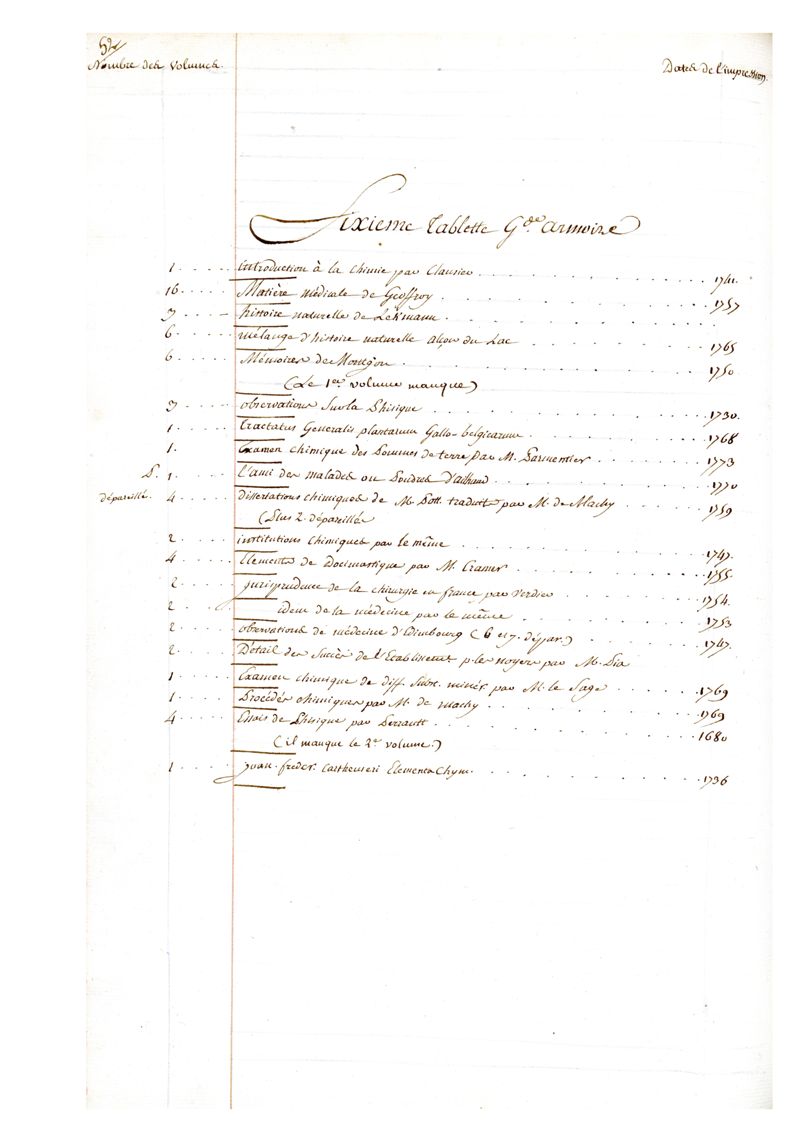 52
Nombre des Volumes. Dates de l'impression.
Sixieme Tablette G.de armoire
1. introduction à la chimie par Clausier 1741.
16. Matière médicale de Geoffroy 1757
3 histoire naturelle de Lekmann
6. mélange d'histoire naturelle alçon du Lac 1765
6. Mémoires de Montgon 1750
(Le 1er volume manque)
3 observations sur la Phisique 1730.
1. tractatus Generalis plantarum Gallo-belgicarum 1768
1. Examen chimique des Pommes de terre par M. Parmentier 1773
P. 1. L'ami des malades ou Poudres d'ailhaud 1770
dépareillé. 4 dissertations chimiques de M. Pott. traduit par M. de Machy 1759
(Plus 2. dépareillés
2 institutions chimiques par le même 1747.
4. Elements de Docimastique par M. Cramer 1755.
2 jurisprudence de la chirurgie en france par Verdier 1754.
2 idem de la médecine par le même 1753
2. observations de médecine d'Edimbourg (6 et 7. dépar.) 1747.
2. Détail des Succès de l'Etablissement p. les noyés par M. Pia
1 Examen chimique de diff. Subst. minér. par M. le Sage 1769
1 Procédés chimiques par M. de machy 1769
4 Essais de Phisique par Perrault 1680
(il manque le 2e volume.)
1 joan. freder. Cartheuseri Elementa Chym. 1736